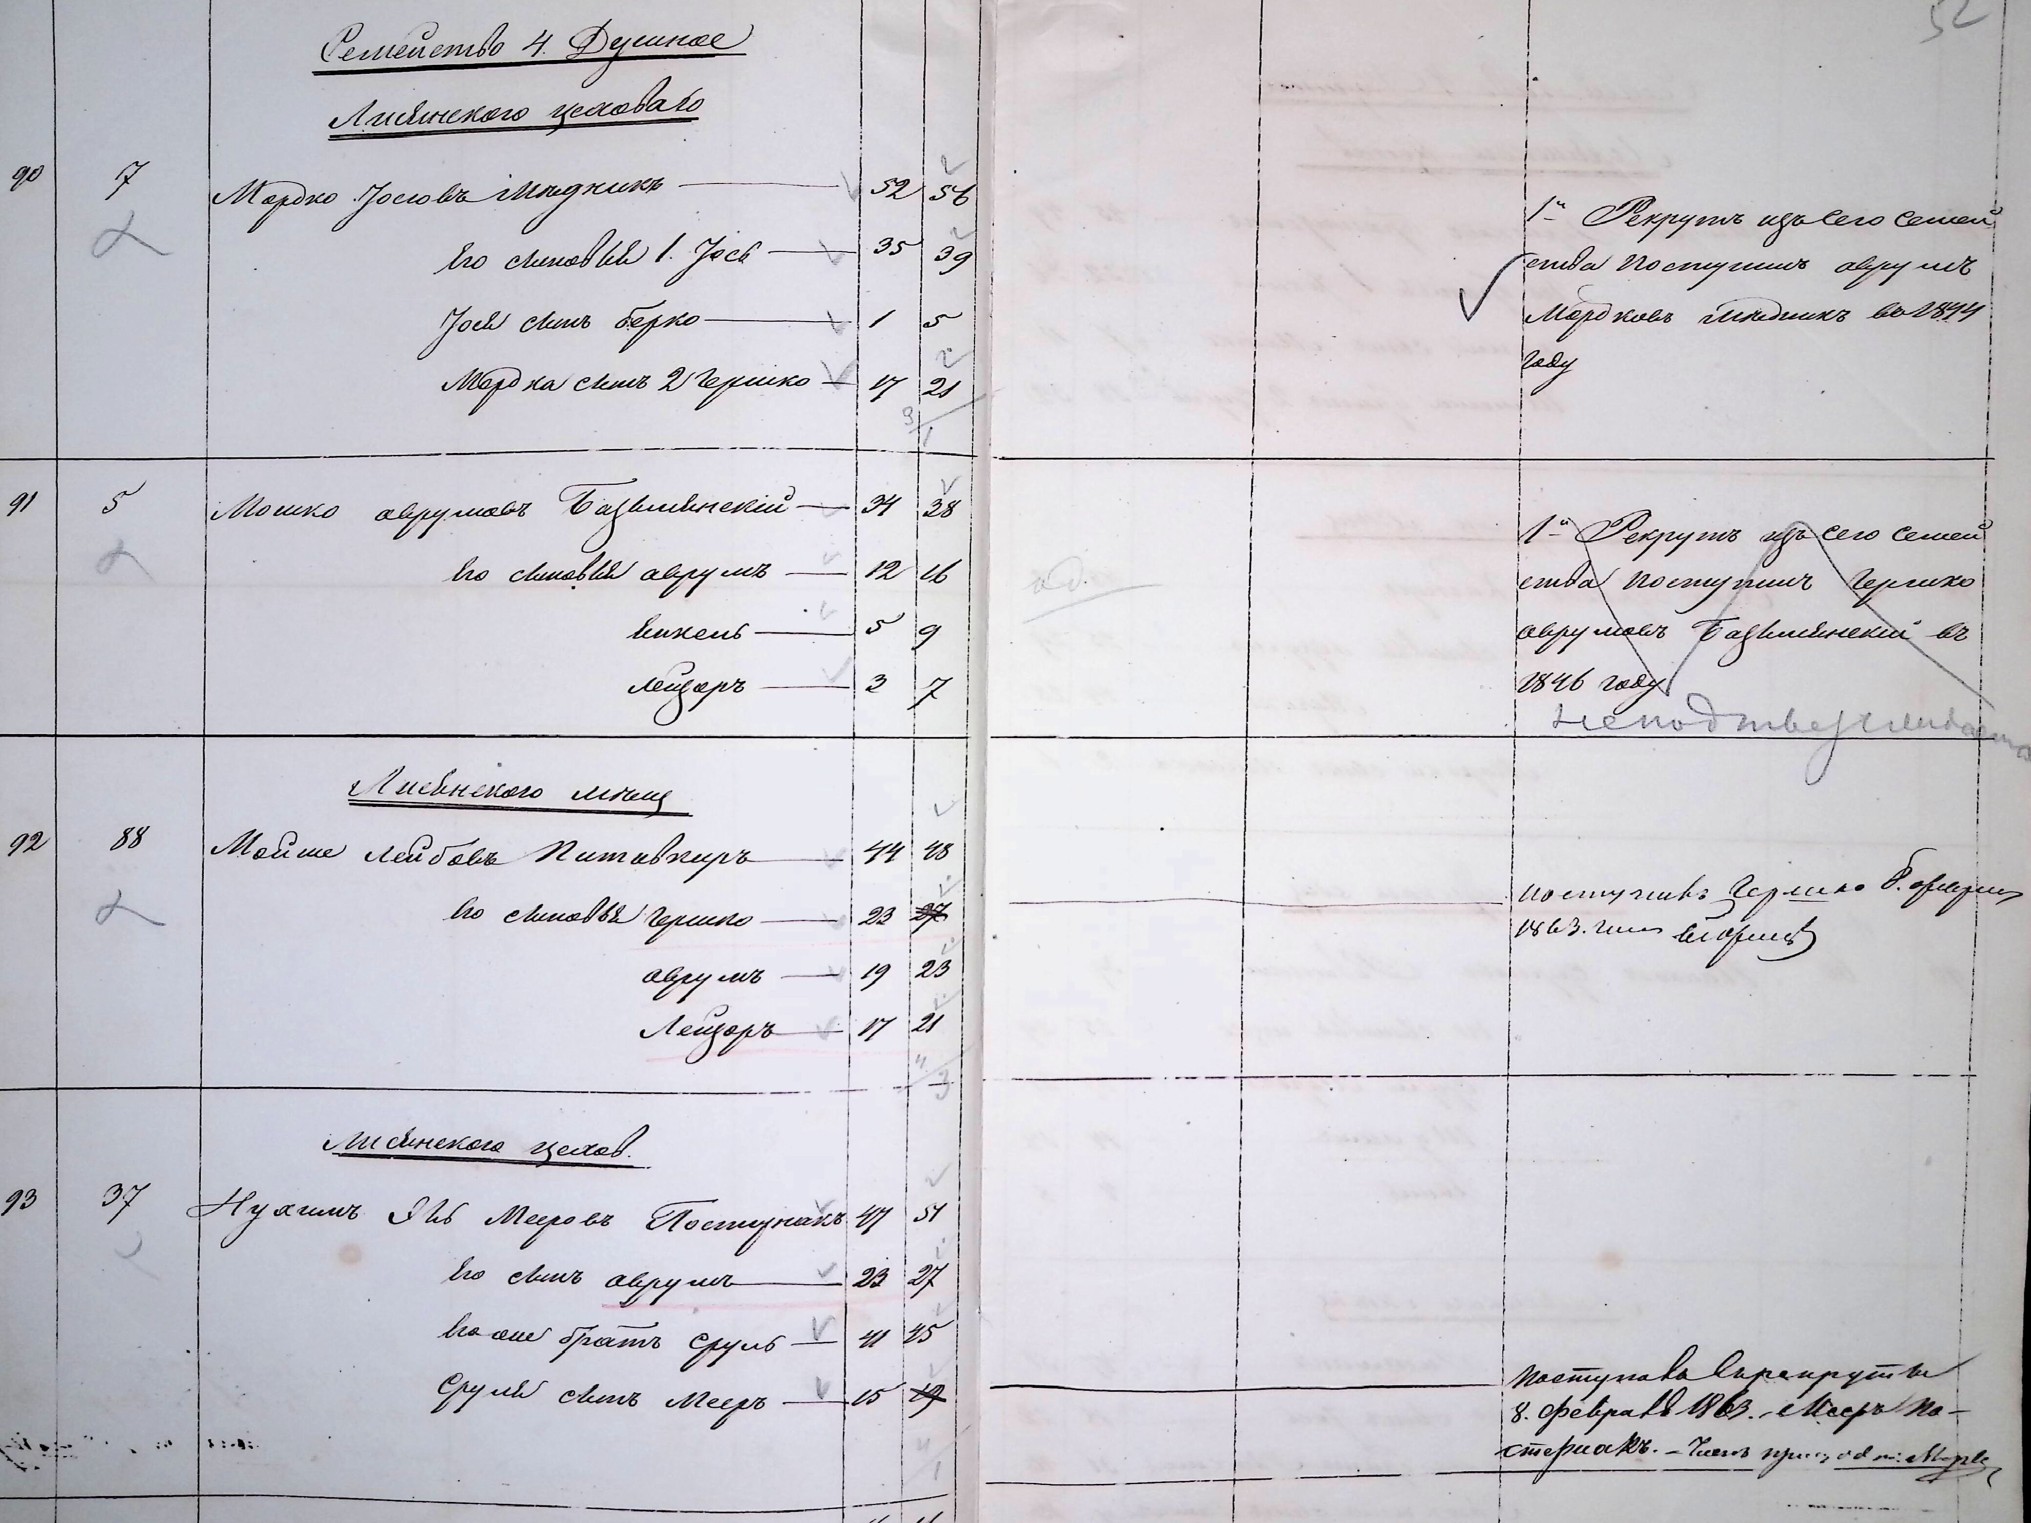 52
Семейство 4. Душное
Лисянскаго цеховаго
90 7 Мордко Іосіовъ Мѣдникъ 52 56
Его сыновья 1. Іось 35 39
Іося сынъ Берко 1 5
Мордка сынъ 2 Гершко 17 21
3/1
1й Рекрутъ изъ сего семей
ства поступилъ Аврумъ
Мордковъ Мѣдникъ въ 1844
году
91 5 Мошко Аврумовъ 34 38
Его сыновья Аврумъ 12 16
5 9
Лейзоръ 3 7
1й Рекрутъ изъ сего семей
ства поступилъ Гершко
Аврумовъ въ
1846 году
Лисянскаго мѣщ
92 88 Мойше Лейбовъ 44 48
Его сыновья Гершко 23 27
Аврумъ 19 23
Лейзоръ 17 21
4/3
поступилъ Гершко 8. февраля
1863.
Лисянскаго цехов.
93 37 Нухимъ Мееровъ 47 51
Его сынъ Аврумъ 23 27
Его же братъ Сруль 41 45
Сруля сынъ Мееръ 15 19
4/1
Поступилъ въ рекруты
8. февраля 1863. Мееръ По-
стернакъ. – Членъ